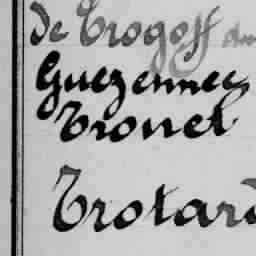 De Trogoff
Guezennec
Tronel
Trotard